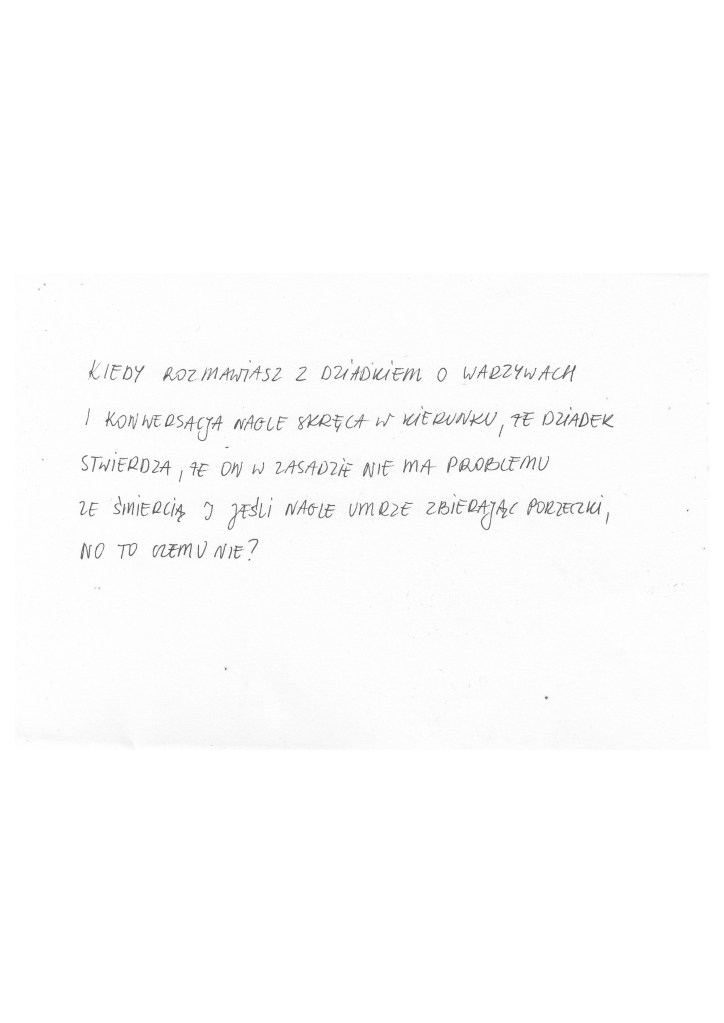 KIEDY ROZMAWIASZ Z DZIADKIEM O WARZYWACH
I KONWERSACJA NAGLE SKRĘCA W KIERUNKU, ŻE DZIADEK
STWIERDZA, ŻE ON W ZASADZIE NIE MA PROBLEMU
ZE ŚMIERCIĄ I JEŚLI NAGLE UMRZE ZBIERAJĄC PORZECZKI,
NO TO CZEMU NIE?